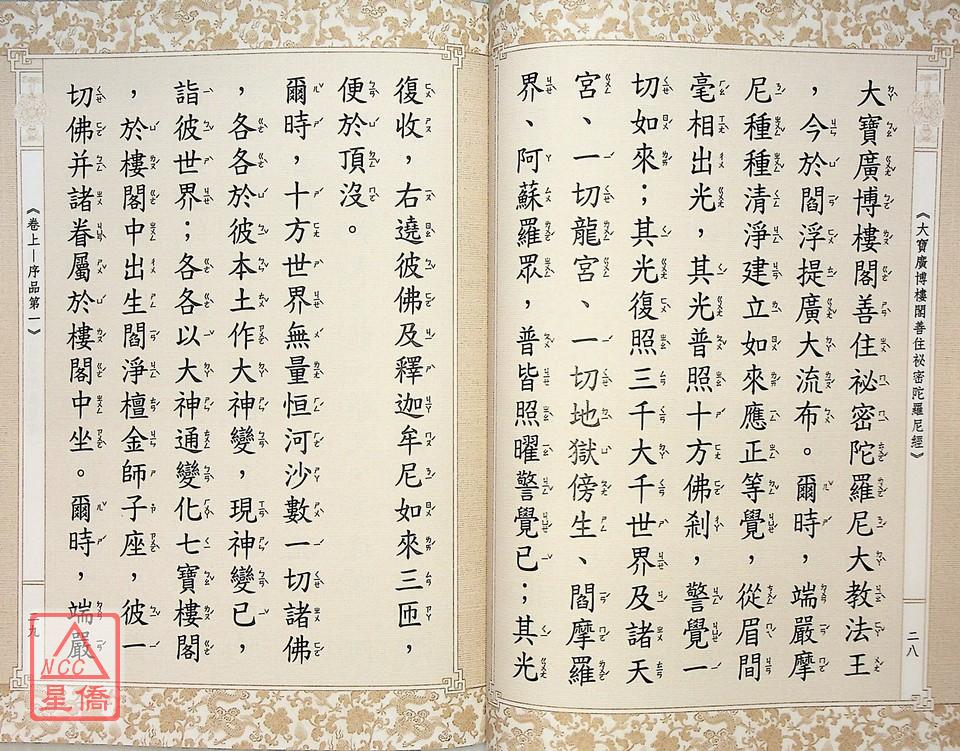 《大寶廣博樓閣善住祕密陀羅尼經》
二八
大寶廣博樓閣善住祕密陀羅尼大教法王
，今於閻浮提廣大流布。爾時，端嚴摩
尼種種清淨建立如來應正等覺，從眉間
毫相出光，其光普照十方佛剎，警覺一
切如來；其光復照三千大千世界及諸天
宮、一切龍宮、一切地獄傍生、閻摩羅
界、阿蘇羅眾，普皆照曜警覺已；其光
復收，右遶彼佛及釋迦牟尼如來三匝，
便於頂沒。
爾時，十方世界無量恒河沙數一切諸佛
，各各於彼本土作大神變，現神變已，
詣彼世界；各各以大神通變化七寶樓閣
，於樓閣中出生閻浄檀金師子座，彼一
切佛并諸眷屬於樓閣中坐。爾時，端嚴
《卷上－序品第一》
二九
NCC
星僑